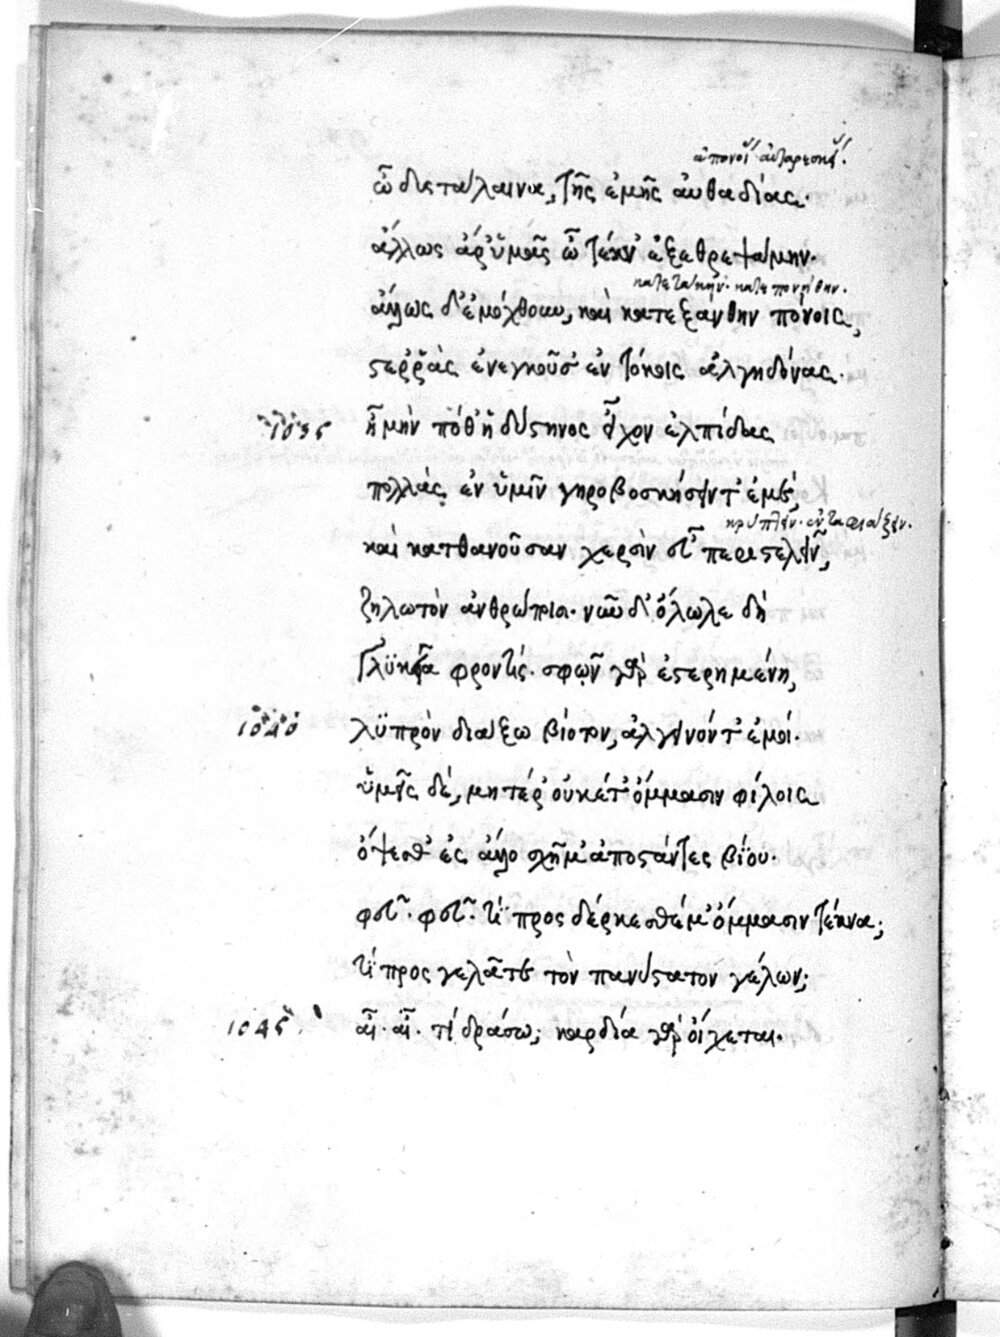 ὦ δυστάλαινα, τῆς ἐμῆς αὐθαδίας·
ἄλλως ἄρ' ὑμᾶς ὦ τέκν' ἐξεθρεψάμην·
κατετάκην· κατεπονήθην·
ἄλλως δ' ἐμόχθουν, καὶ κατεξάνθην πόνοις,
στεῤῥὰς ἐνεγκοῦσ' ἐν τόκοις ἀλγηδόνας·
1035 ἦ μὴν πόθ' ἡ δύστηνος εἶχον ἐλπίδας
πολλὰς ἐν ὑμῖν γηροβοσκήσειν τ' ἐμέ,
καὶ κατθανοῦσαν χερσὶν εὖ περιστελεῖν,
ζηλωτὸν ἀνθρώποισι· νῦν δ' ὄλωλε δὴ
γλυκεῖα φροντίς· σφῶν γὰρ ἐστερημένη,
1040 λυπρὸν διάξω βίοτον, ἀλγεινόν τ' ἐμοί·
ὑμεῖς δὲ, μητέρ' οὐκέτ' ὄμμασιν φίλοις
ὄψεσθ' ἐς ἄλλο σχῆμ' ἀποστάντες βίου·
φεῦ· φεῦ· τί προσδέρκεσθέ μ' ὄμμασιν τέκνα;
τί προσγελᾶτε τὸν πανύστατον γέλων;
1045 αἶ· αἶ· τί δράσω; καρδία γὰρ οἴχεται·